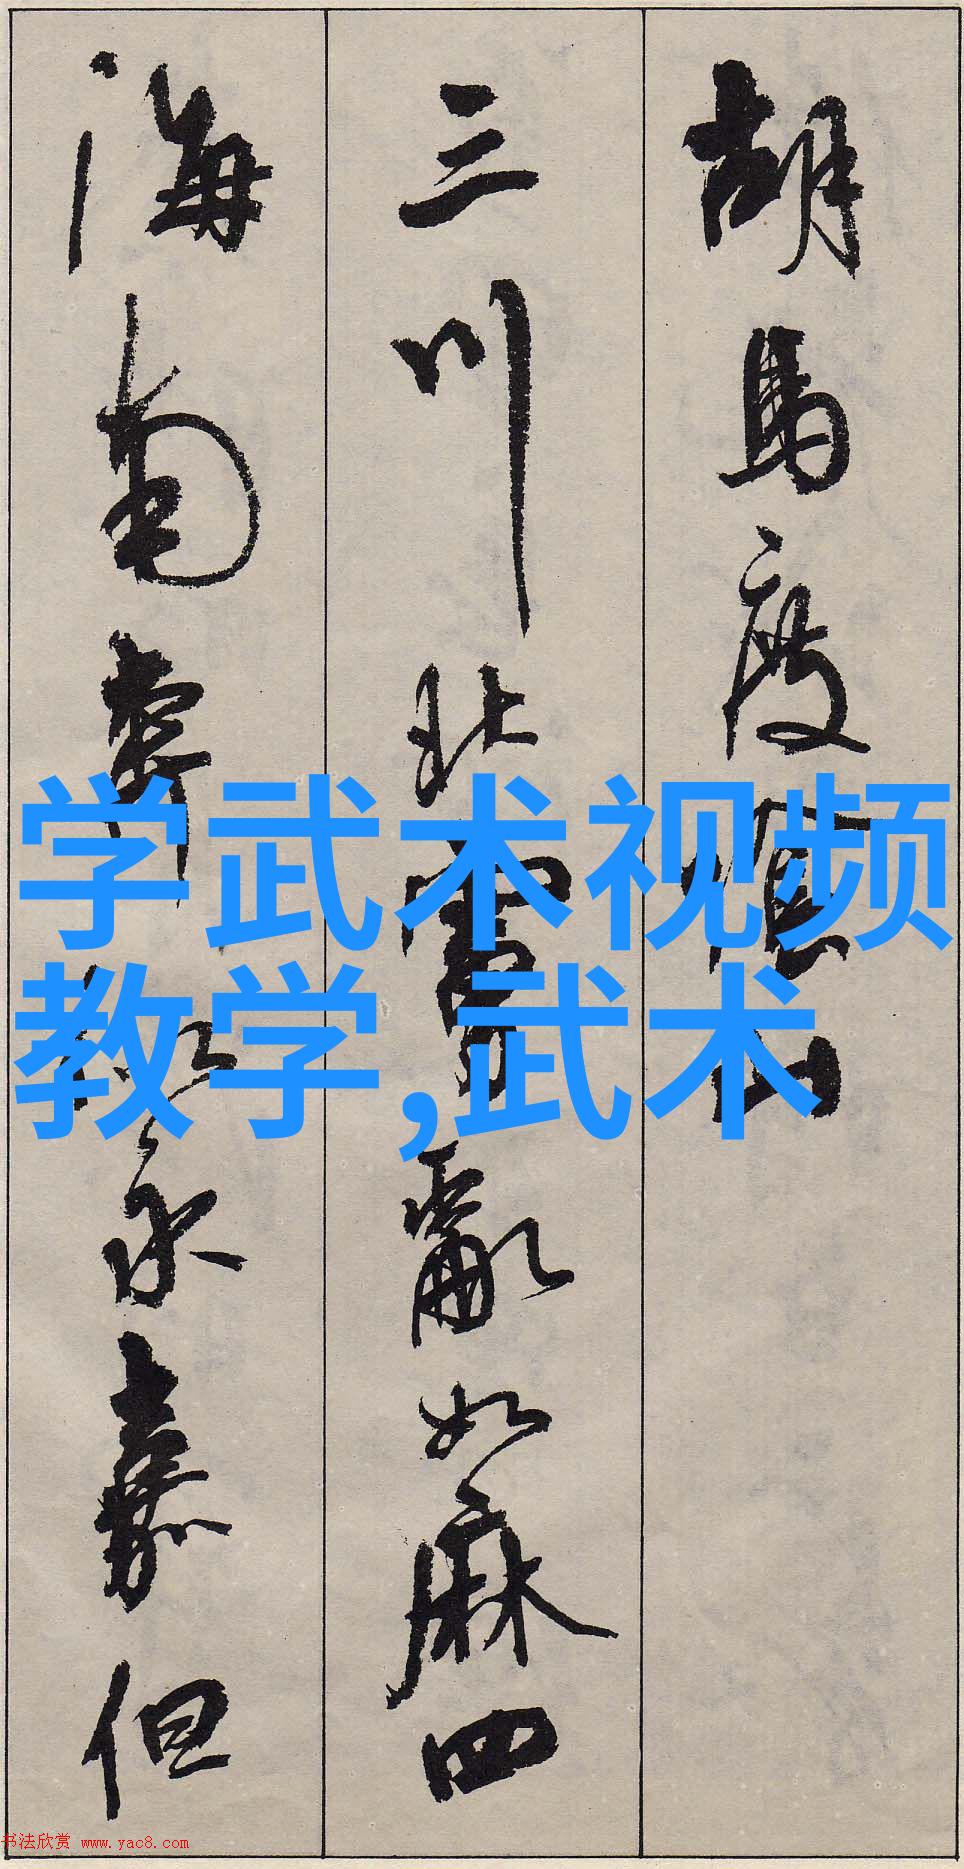 胡马度阴山
三川北虏乱如麻四
海南奔似永嘉但
学武术视频
教学,武术
书法欣赏 www.yac8.com